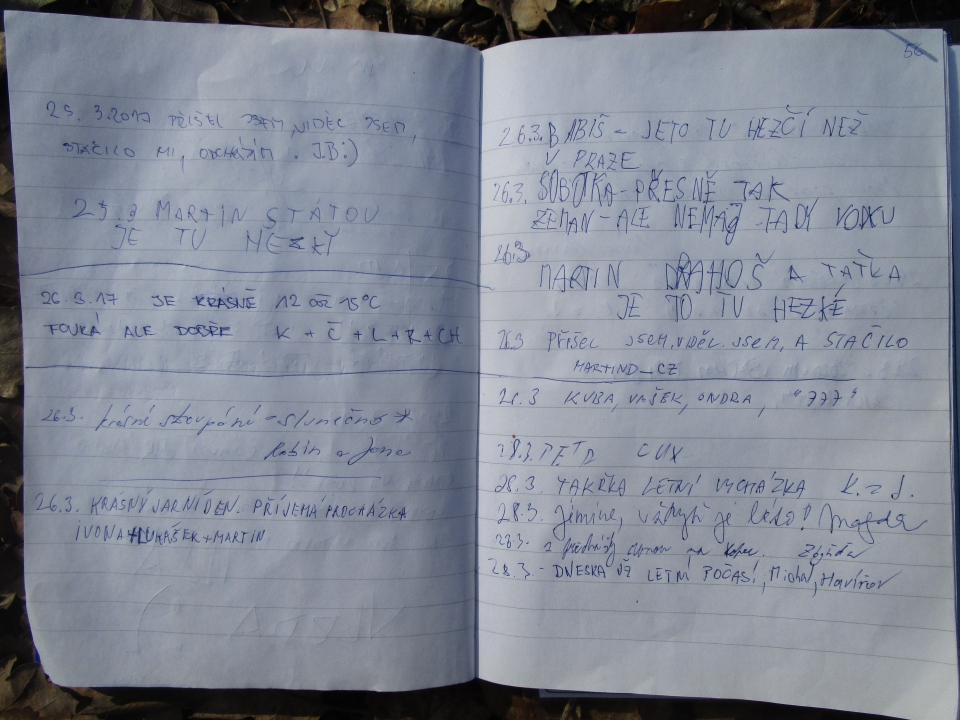 25. 3.2017 PŘIŠEL JSEM, VIDĚL JSEM,
STAČILO MI, ODCHÁZÍM. J.B:)
25.3 MARTIN STÁTOU
JE TU HEZKÝ
26.3.17 JE KRÁSNĚ 12 až 15°C
FOUKÁ ALE DOBŘE K + Č + L + R + CH
26.3. krásné stoupání - slunečno
Robin a Jana
26.3. KRÁSNÝ JARNÍ DEN. PŘÍJEMÁ PROCHÁZKA
IVONA+LUKÁŠEK+MARTIN
56
26.3. BABIŠ - JETO TU HEZČÍ NEŽ
V PRAZE
26.3. SOBOTKA-PŘESNĚ TAK
ZEMAN-ALE NEMAJ TADY VODKU
26.3
MARTIN DRAHOŠ A TAŤKA
JE TO TU HEZKÉ
26.3 PŘIŠEL JSEM, VIDĚL JSEM, A STAČILO
MARTIND_CZ
26.3 KUBA, VAŠEK, ONDRA, "777"
28.3. CUX
28.3. TAKŘKA LETNÍ VYCHÁZKA K. J.
28.3. Jémine, vždyť je léto! Magda
28.3. na kopec.
28.3. - DNESKA UŽ LETNÍ POČASÍ, Michal, Havířov